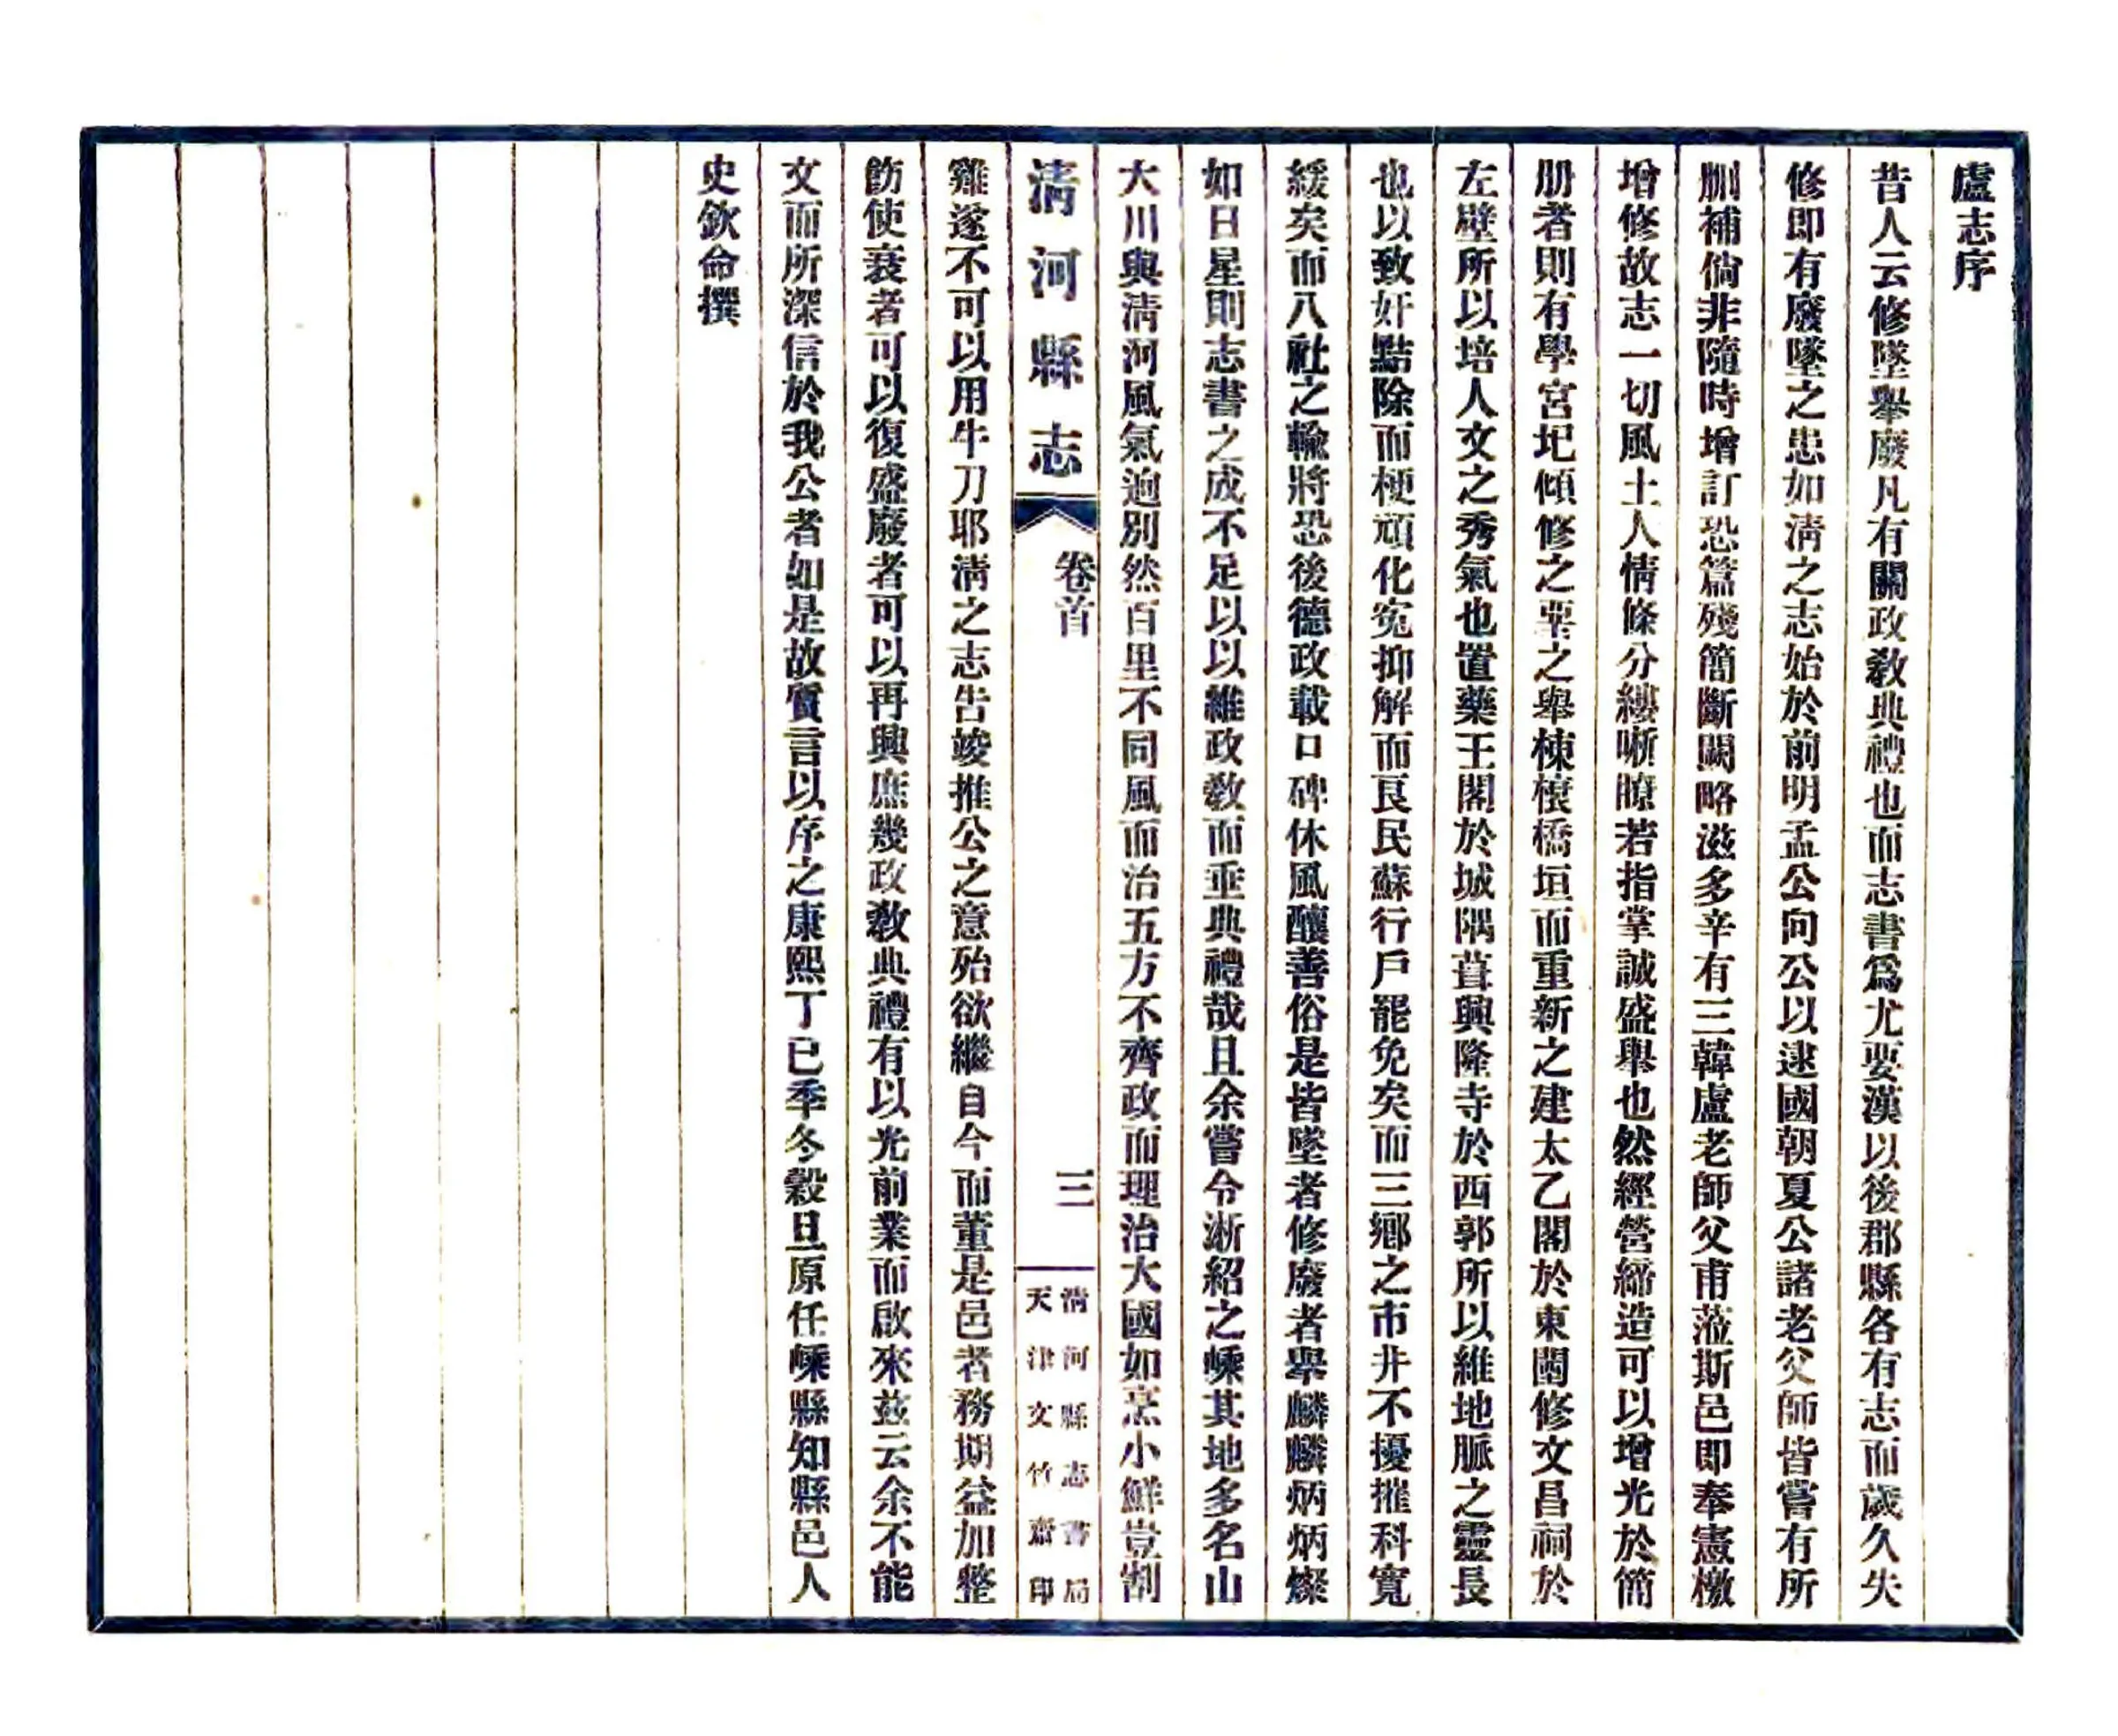 盧志序
昔人云修墜舉廢凡有關政敎典禮也而志書爲尤要漢以後郡縣各有志而歲久失
修即有廢墜之患如淸之志始於前明孟公向公以逮國朝夏公諸老父師皆嘗有所
刪補倘非隨時增訂恐篇殘簡斷闕略滋多辛有三韓盧老師父甫蒞斯邑即奉憲檄
增修故志一切風土人情條分縷晰瞭若指掌誠盛舉也然經營締造可以增光於簡
册者則有學宮圮傾修之堊之舉棟櫳橋垣而重新之建太乙閣於東閣修文昌祠於
左壁所以培人文之秀氣也置藥王閣於城隅葺興隆寺於西郭所以維地脈之靈長
也以致奸黠除而梗頑化寃抑解而良民蘇行戶罷免矣而三鄕之市井不擾摧科寬
緩矣而八社之輸將恐後德政載口碑休風釀善俗是皆墜者修廢者舉麟麟炳炳燦
如日星則志書之成不足以以維政敎而垂典禮哉且余嘗令淅紹之嵊其地多名山
大川與淸河風氣迥別然百里不同風而治五方不齊政而理治大國如烹小鮮豈割
淸河縣志
卷首
三
淸河縣志書局
天津文竹齋印
雞遂不可以用牛刀耶淸之志告竣推公之意殆欲繼自今而董是邑者務期益加整
飭使衰者可以復盛廢者可以再興庶幾政敎典禮有以光前業而啟來茲云余不能
文而所深信於我公者如是故質言以序之康熙丁巳季冬穀旦原任嵊縣知縣邑人
史欽命撰